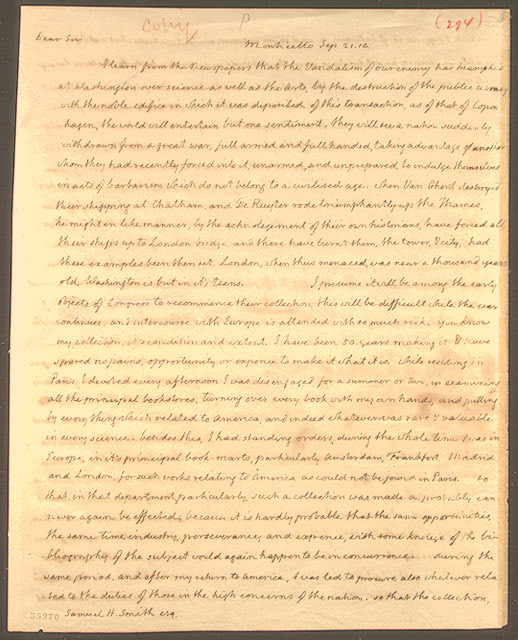 copy P (294)
Dear Sir
Monticello Sep. 21. 14.
I learn from the Newspapers that the Vandalism of our enemy has triumphed
at Washington over science as well as the Arts, by the destruction of the public library
with the noble edifice in which it was deposited. of this transaction, as of that of Copen
hagen, the world will entertain but one sentiment. they will see a nation suddenly
withdrawn from a great war, full armed and full handed, taking advantage of another
whom they had recently forced into it, unarmed, and unprepared, to indulge themselves
in acts of barbarism which do not belong to a civilised age. when Van Ghent destroyed
their shipping at Chatham, and De Ruyter rode triumphantly up the Thames,
he might in like manner, by the acknolegement of their own historians, have forced all
their ships up to London bridge, and there have burnt them, the tower, & city, had
these examples been then set. London, when thus menaced, was near a thousand years
old, Washington is but in it's teens.
I presume it will be among the early
objects of Congress to recommence their collection. this will be difficult while the war
continues, and intercourse with Europe is attended with so much risk. you know
my collection, it's condition and extent. I have been 50. years making it & have
spared no pains, opportunity or expence to make it what it is. while residing in
Paris I devoted every afternoon I was disengaged, for a summer or two, in examining
all the principal bookstores, turning over every book with my own hands, and putting
by every thing which related to America, and indeed whatever was rare & valuable
in every science. besides this, I had standing orders, during the whole time I was in
Europe, in it's principal book-marts, particularly Amsterdam, Frankfort, Madrid
and London, for such works relating to America as could not be found in Paris. so
that, in that department particularly, such a collection was made as probably can
never again be effected; because it is hardly probable that the same opportunities,
the same time, industry, perseverance, and expence, with some knolege of the bi-
bliography of the subject would again happen to be in concurrence. during the
same period, and after my return to America, I was led to procure also whatever rela
ted to the duties of those in the high concerns of the nation. so that the collection,
35970 Samuel H. Smith esq.